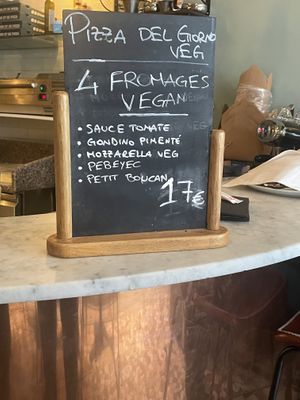 PIZZA DEL GIORNO
VEG
4 FROMAGES
VEGAN
• SAUCE TOMATE
• GONDINO PIMENTÉ
• MOZZARELLA VEG
• PEBEYEC
• PETIT BOUCAN
17€